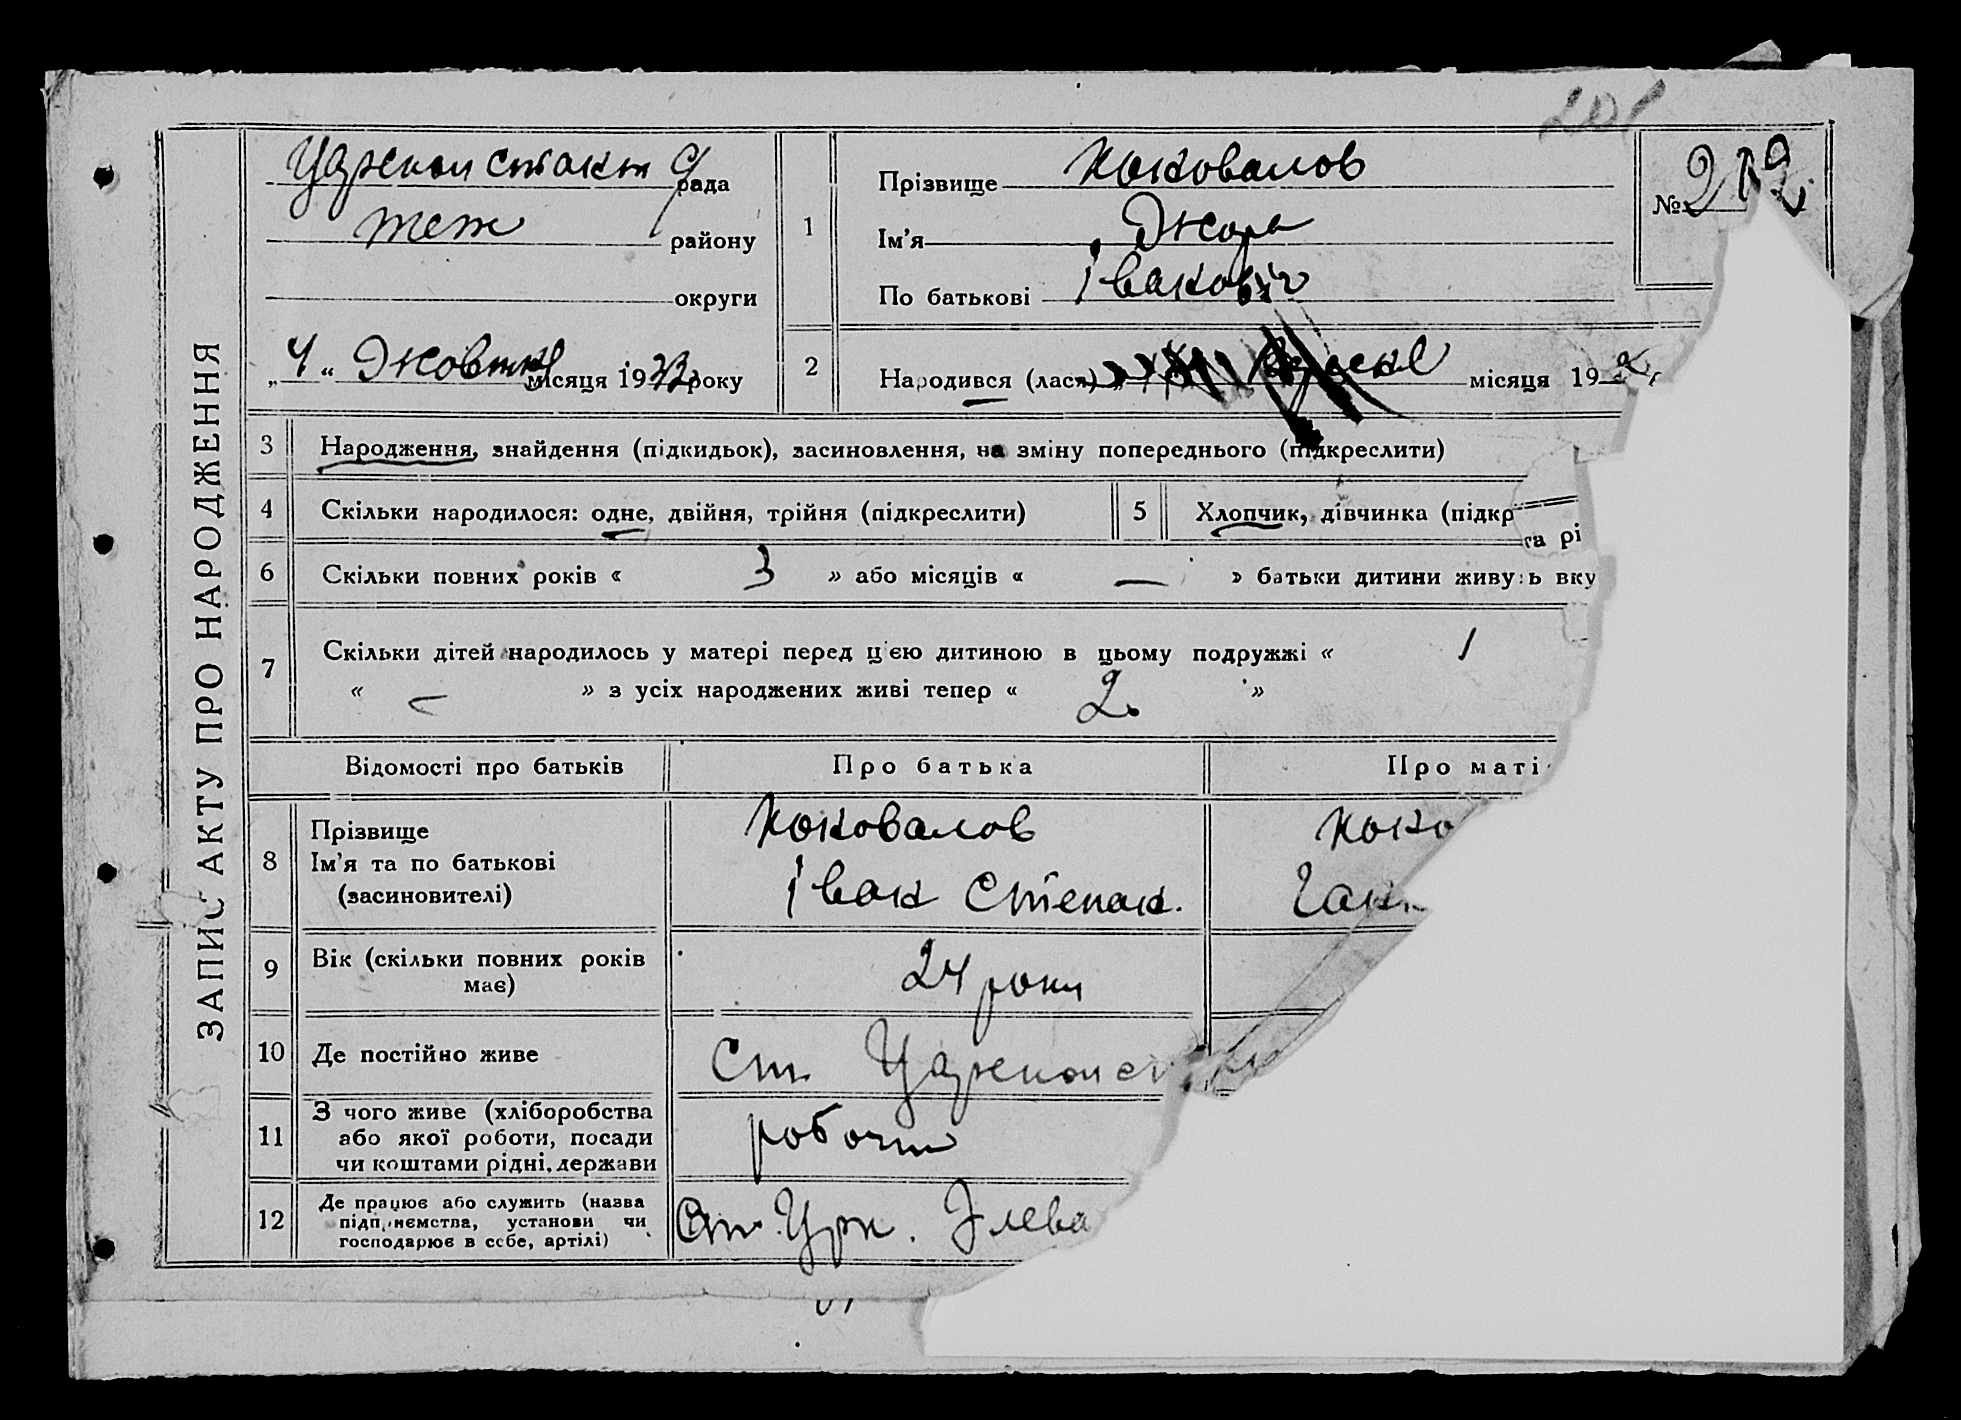 201
ЗАПИС АКТУ ПРО НАРОДЖЕННЯ
рада
теж району
округи
„4“ Жовтня місяця 1933 року
1
Прізвище Коковалов
Ім’я Жора
По батькові Іванович
№ 212
2
Народився (лася) місяця 19
3 Народження, знайдення (підкидьок), засиновлення, на зміну попереднього (підкреслити)
4 Скільки народилося: одне, двійня, трійня (підкреслити)
5 Хлопчик, дівчинка (підкр
та рі
6 Скільки повних років « 3 » або місяців « — » батьки дитини живуть вку
7 Скільки дітей народилось у матері перед цією дитиною в цьому подружжі « 1
« — » з усіх народжених живі тепер « 2 »
Відомості про батьків
Про батька
Про маті
8 Прізвище
Ім’я та по батькові
(засиновителі)
Коковалов
Іван Степан.
Коко
Ган
9 Вік (скільки повних років
має)
24 роки
10 Де постійно живе
Ст.
11 З чого живе (хліборобства
або якої роботи, посади
чи коштами рідні, держави
робочий
12 Де працює або служить (назва
підприємства, установи чи
господарює в себе, артілі)
Ст. Црк. Элева